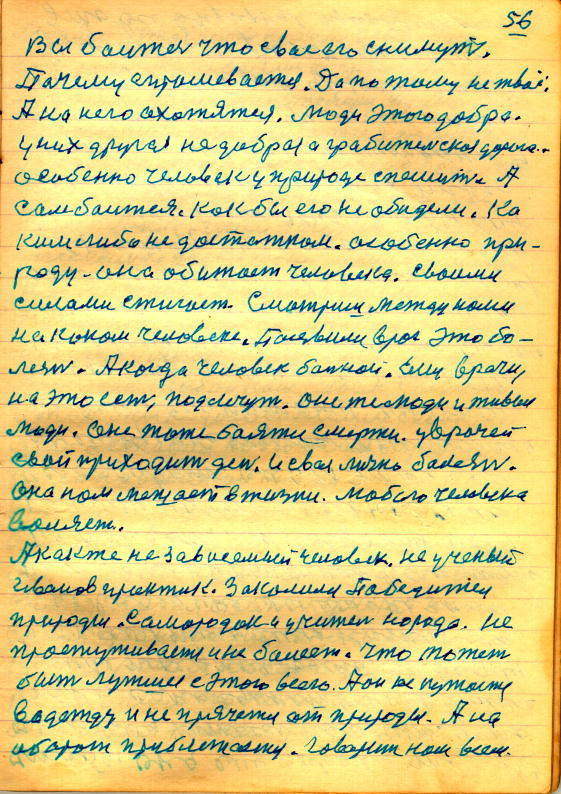 56
Все боится что свае его снимут.
Пачему спрашевается. Да потому не твае:
А на него охотятся. Люди этого добра.
у них другая не добрая а грабительская дорога.
особенно человек у природе спешит. А
сам боится. Как бы его не обидели. Ка
ким либо не достатком. особенно при-
роду. она обитает человека. своими
силами стигает. Смотриш между нами
на каком человеке. Паевили враг это бо-
лезн. А когда человек больной. ему врачи,
на это ест, подлечут. они же люди и живыи
люди. они тоже бояться смерти. у врачей
свой приходит ден. и свая лично болезн.
она нам мешает в жизни. любого человека
валяет.
А как же не зависемый человек. не ученый
Иванов практик. Закалили Победител
природы. Самородок и учител народа. не
простуживается и не болеет. что может
быт лутшее с этого всего. А он не кутается
в одежду и не прячется от природы. А на
оборот приближается. говорит нам всем.